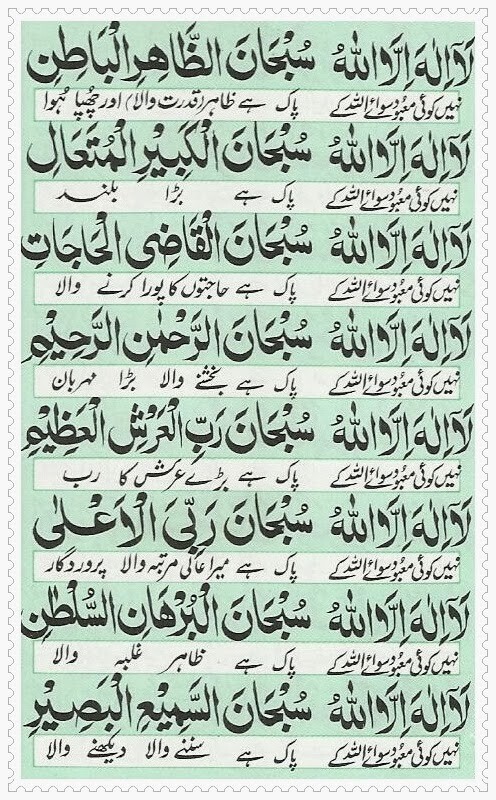 لَآ اِلٰهَ اِلَّا اللّٰهُ سُبْحَانَ الظَّاهِرِ الْبَاطِنِ
نہیں کوئی معبود سوائے اللہ کے پاک ہے ظاہر (قدرت والا) اور چُھپا ہُوا
لَآ اِلٰهَ اِلَّا اللّٰهُ سُبْحَانَ الْكَبِيْرِ الْمُتَعَالِ
نہیں کوئی معبود سوائے اللہ کے پاک ہے بڑا بلند
لَآ اِلٰهَ اِلَّا اللّٰهُ سُبْحَانَ الْقَاضِى الْحَاجَاتِ
نہیں کوئی معبود سوائے اللہ کے پاک ہے حاجتوں کا پورا کرنے والا
لَآ اِلٰهَ اِلَّا اللّٰهُ سُبْحَانَ الرَّحْمٰنِ الرَّحِيْمِ
نہیں کوئی معبود سوائے اللہ کے پاک ہے بخشنے والا بڑا مہربان
لَآ اِلٰهَ اِلَّا اللّٰهُ سُبْحَانَ رَبِّ الْعَرْشِ الْعَظِيْمِ
نہیں کوئی معبود سوائے اللہ کے پاک ہے بڑے عرش کا رب
لَآ اِلٰهَ اِلَّا اللّٰهُ سُبْحَانَ رَبِّىَ الْاَعْلٰى
نہیں کوئی معبود سوائے اللہ کے پاک ہے میرا عالی مرتبہ والا پروردگار
لَآ اِلٰهَ اِلَّا اللّٰهُ سُبْحَانَ الْبُرْهَانِ السُّلْطٰنِ
نہیں کوئی معبود سوائے اللہ کے پاک ہے ظاہر غلبہ والا
لَآ اِلٰهَ اِلَّا اللّٰهُ سُبْحَانَ السَّمِيْعِ الْبَصِيْرِ
نہیں کوئی معبود سوائے اللہ کے پاک ہے سننے والا دیکھنے والا